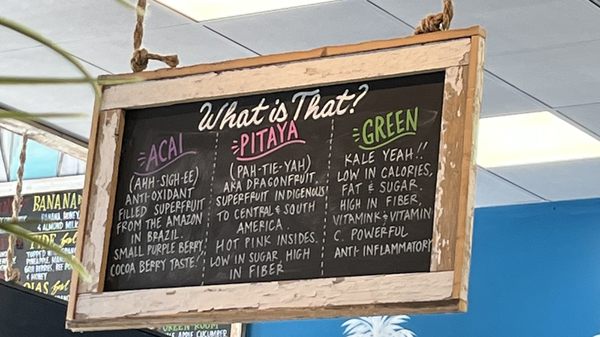 What is That?
ACAI
(AHH-SIGH-EE)
ANTI-OXIDANT
FILLED SUPERFRUIT
FROM THE AMAZON
IN BRAZIL.
SMALL PURPLE BERRY,
COCOA BERRY TASTE!
PITAYA
(PAH-TIE-YAH)
AKA DRAGONFRUIT.
SUPERFRUIT INDIGENOUS
TO CENTRAL & SOUTH
AMERICA.
HOT PINK INSIDES.
LOW IN SUGAR, HIGH
IN FIBER
GREEN
KALE YEAH!!
LOW IN CALORIES,
FAT & SUGAR.
HIGH IN FIBER,
VITAMIN K & VITAMIN
C. POWERFUL
ANTI-INFLAMMATORY
BANANA
BANANA, HONEY,
& ALMOND MILK
& HONEY
GREEN ROOM